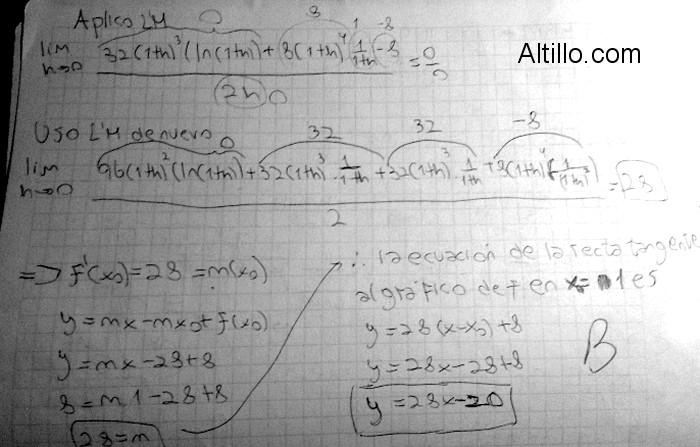 Aplico L'H
Altillo.com
0 8 1 -8
lim h→0 (32(1+h)³(ln(1+h)) + 8(1+h)⁴ 1/(1+h) - 8) / (2h) = 0/0
0
Uso L'H de nuevo
0 32 32 -8
lim h→0 (96(1+h)²(ln(1+h)) + 32(1+h)³ · 1/(1+h) + 32(1+h)³ · 1/(1+h) + 8(1+h)⁴(-1/(1+h)²)) / 2 = 28
=> f'(x₀) = 28 = m(x₀)
y = mx - mx₀ + f(x₀)
y = mx - 28 + 8
8 = m1 - 28 + 8
28 = m
∴ la ecuación de la recta tangente
al gráfico de f en x = 1 es
y = 28(x - x₀) + 8
y = 28x - 28 + 8
y = 28x - 20
B